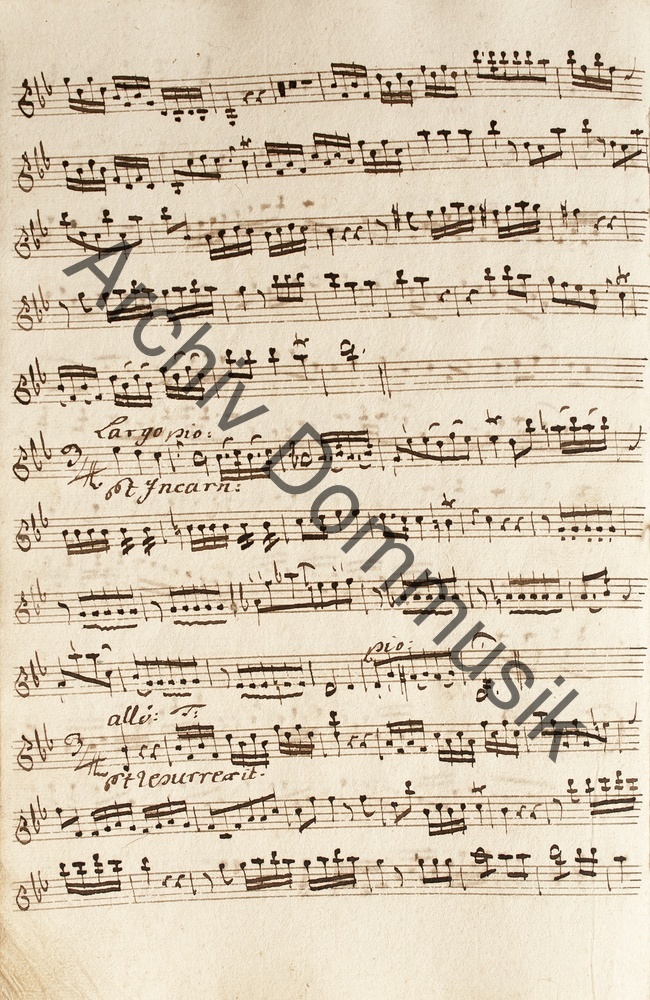 Largo pio:
3/4
Et Incarn:
pio:
allo: T:
3/4
Et resurrexit.
Archiv Dommusik